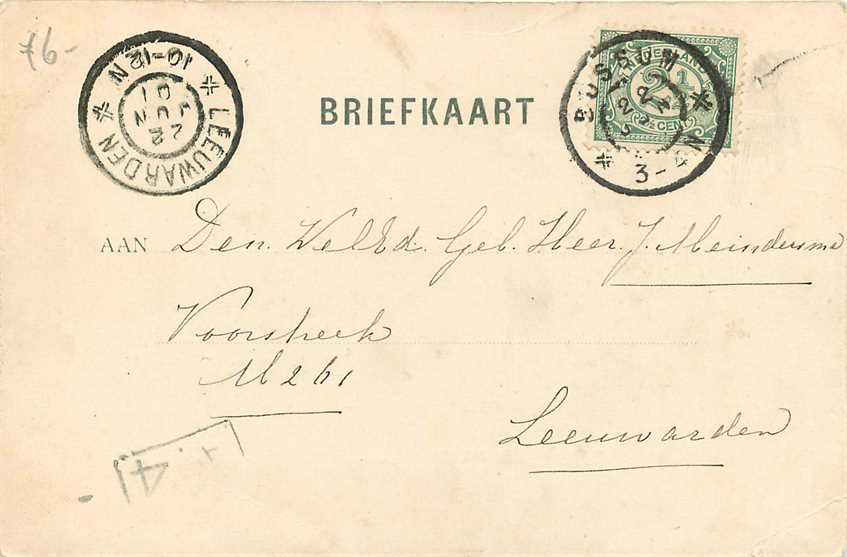 76-
LEEUWARDEN
10-12N
BRIEFKAART
BUSSUM
3-
N
NEDERLAND
2½
CENT
AAN Den WelEd. Geb. Heer J. Meindersma
Voorstreek
M 261
Leeuwarden